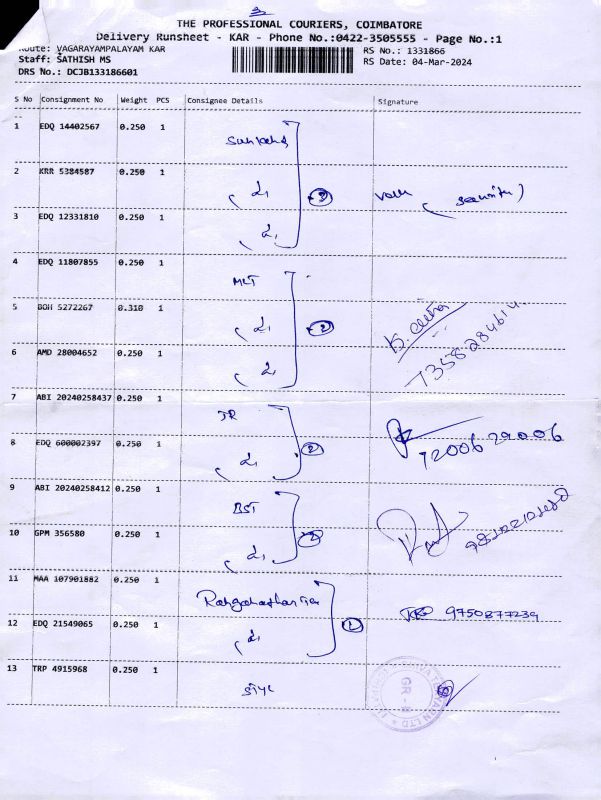 THE PROFESSIONAL COURIERS, COIMBATORE
Delivery Runsheet - KAR - Phone No.:0422-3505555 - Page No.:1
Route: VAGARAYAMPALAYAM KAR
RS No.: 1331866
Staff: SATHISH MS
RS Date: 04-Mar-2024
DRS No.: DCJB133186601
S No Consignment No Weight PCS Consignee Details Signature
1 EDQ 14402567 0.250 1
2 KRR 5384587 0.250 1
(security)
3 EDQ 12331810 0.250 1
4 EDQ 11807855 0.250 1
MLT
5 BOH 5272267 0.310 1
2
7358284614
6 AMD 28004652 0.250 1
7 ABI 20240258437 0.250 1
JR
8 EDQ 600002397 0.250 1
2
72006 29006
9 ABI 20240258412 0.250 1
BST
10 GPM 356580 0.250 1
2
11 MAA 107901882 0.250 1
9750877239
12 EDQ 21549065 0.250 1
1
13 TRP 4915968 0.250 1